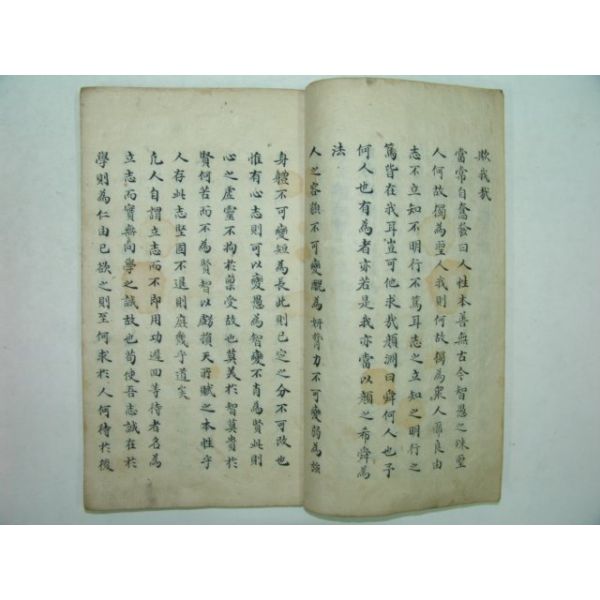 欺我哉
當常自奮發曰人性本善無古今智愚之殊聖
人何故獨為聖人我則何故獨為衆人耶良由
志不立知不明行不篤耳志之立知之明行之
篤皆在我耳豈可他求哉顔淵曰舜何人也予
何人也有為者亦若是我亦當以顔之希舜為
法
人之容貌不可變醜為姸膂力不可變弱為強
身軆不可變短為長此則已定之分不可改也
惟有心志則可以變愚為智變不肖為賢此則
心之虛靈不拘於稟受故也莫美於智莫貴於
賢何苦而不為賢智以虧損天所賦之本性乎
人存此志堅固不退則庶幾乎道矣
凡人自謂立志而不即用功遲回等待者名為
立志而實無向學之誠故也苟使吾志誠在於
學則為仁由已欲之則至何求於人何待於後